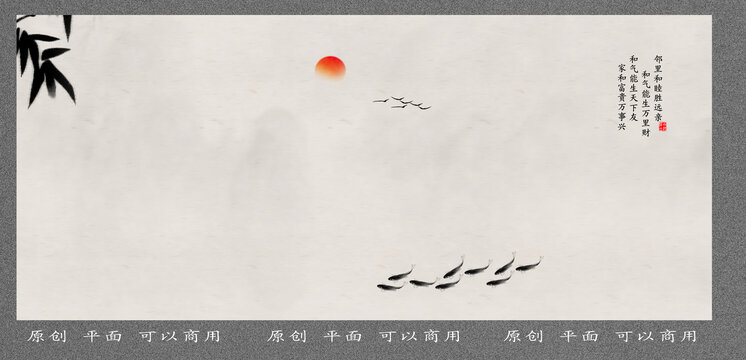 邻里和睦胜远亲
和气能生万里财
和气能生天下友
家和富贵万事兴
原创 平面 可以商用 原创 平面 可以商用 原创 平面 可以商用